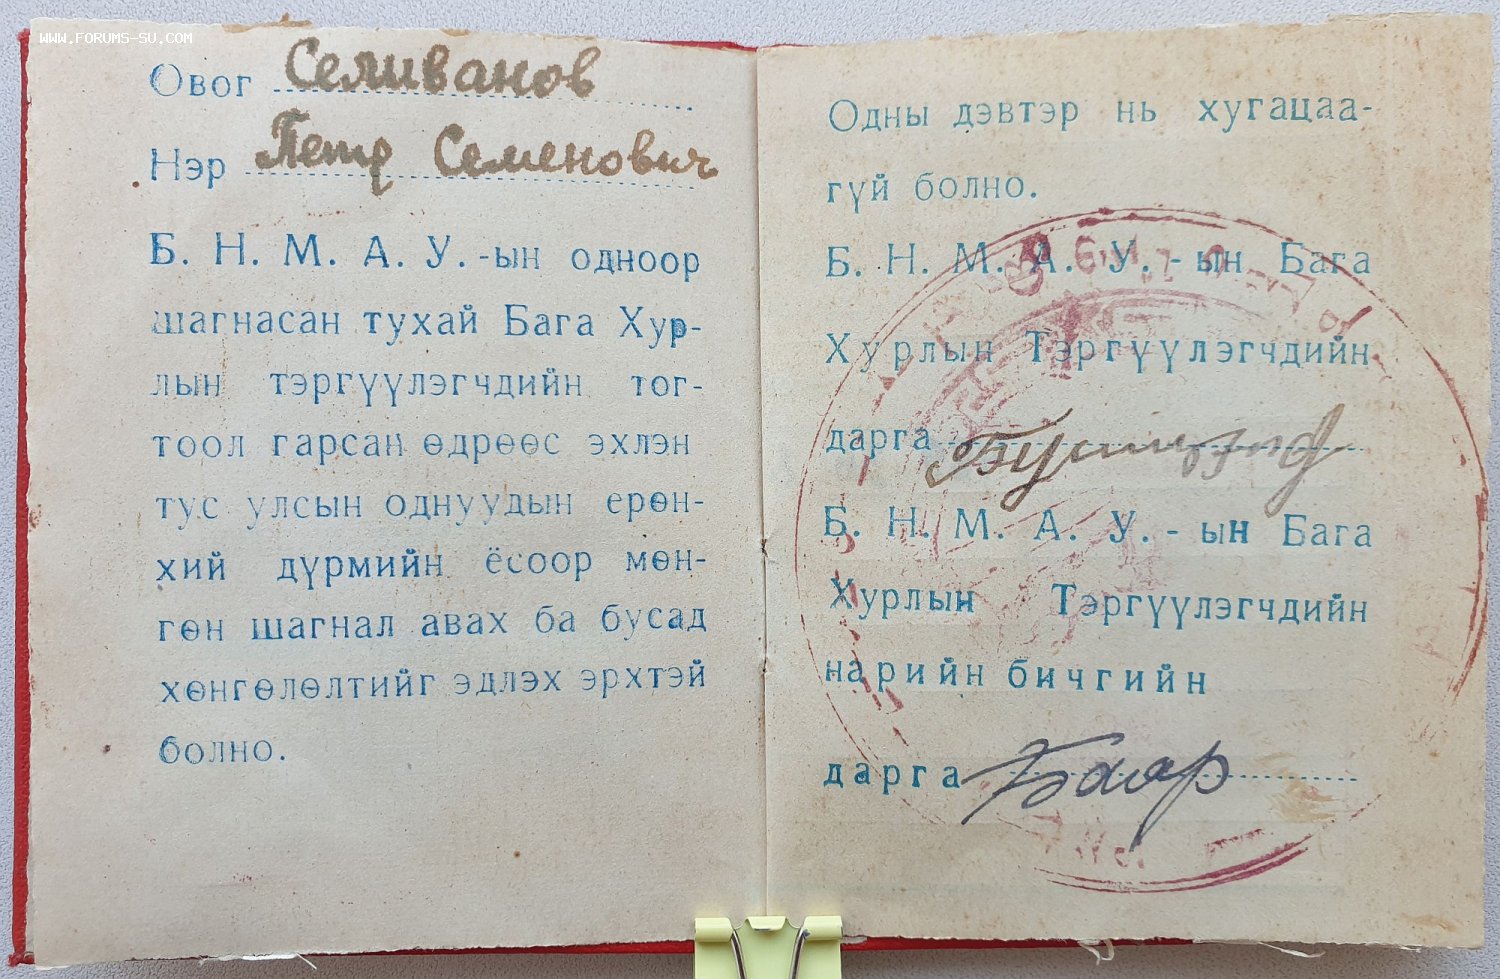 WWW.FORUMS-SU.COM
Овог Селиванов
Нэр Петр Семенович
Б. Н. М. А. У.-ын одноор
шагнасан тухай Бага Хур-
лын тэргүүлэгчдийн тог-
тоол гарсан өдрөөс эхлэн
тус улсын однуудын ерөн-
хий дүрмийн ёсоор мөн-
гөн шагнал авах ба бусад
хөнгөлөлтийг эдлэх эрхтэй
болно.
Одны дэвтэр нь хугацаа-
гүй болно.
Б. Н. М. А. У.-ын Бага
Хурлын Тэргүүлэгчдийн
дарга
Б. Н. М. А. У.-ын Бага
Хурлын Тэргүүлэгчдийн
нарийн бичгийн
дарга